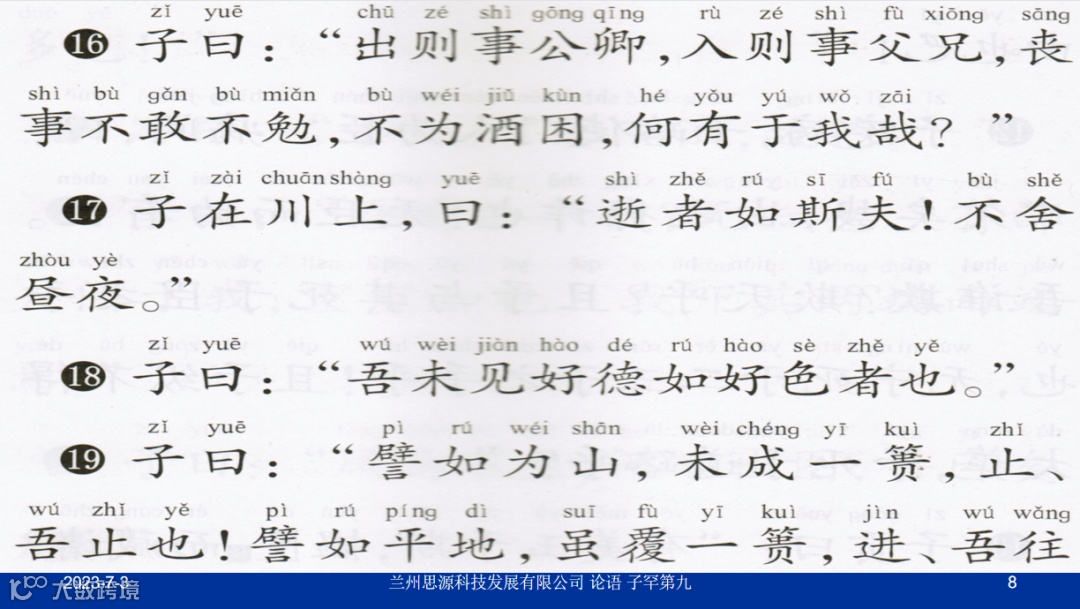 zǐ yuē chū zé shì gōng qīng rù zé shì fù xiōng sāng
16 子曰：“出则事公卿，入则事父兄，丧
shì bù gǎn bù miǎn bù wéi jiǔ kùn hé yǒu yú wǒ zāi
事不敢不勉，不为酒困，何有于我哉？”
zǐ zài chuān shàng yuē shì zhě rú sī fú bù shě
17 子在川上，曰：“逝者如斯夫！不舍
zhòu yè
昼夜。”
zǐ yuē wú wèi jiàn hào dé rú hào sè zhě yě
18 子曰：“吾未见好德如好色者也。”
zǐ yuē pì rú wéi shān wèi chéng yī kuì zhǐ
19 子曰：“譬如为山，未成 篑，止、
wú zhǐ yě pì rú píng dì suī fù yī kuì jìn wú wǎng
吾止也！譬如平地，虽覆 篑，进、吾往
2023-7-3 兰州思源科技发展有限公司 论语 子罕第九 8
大数跨境